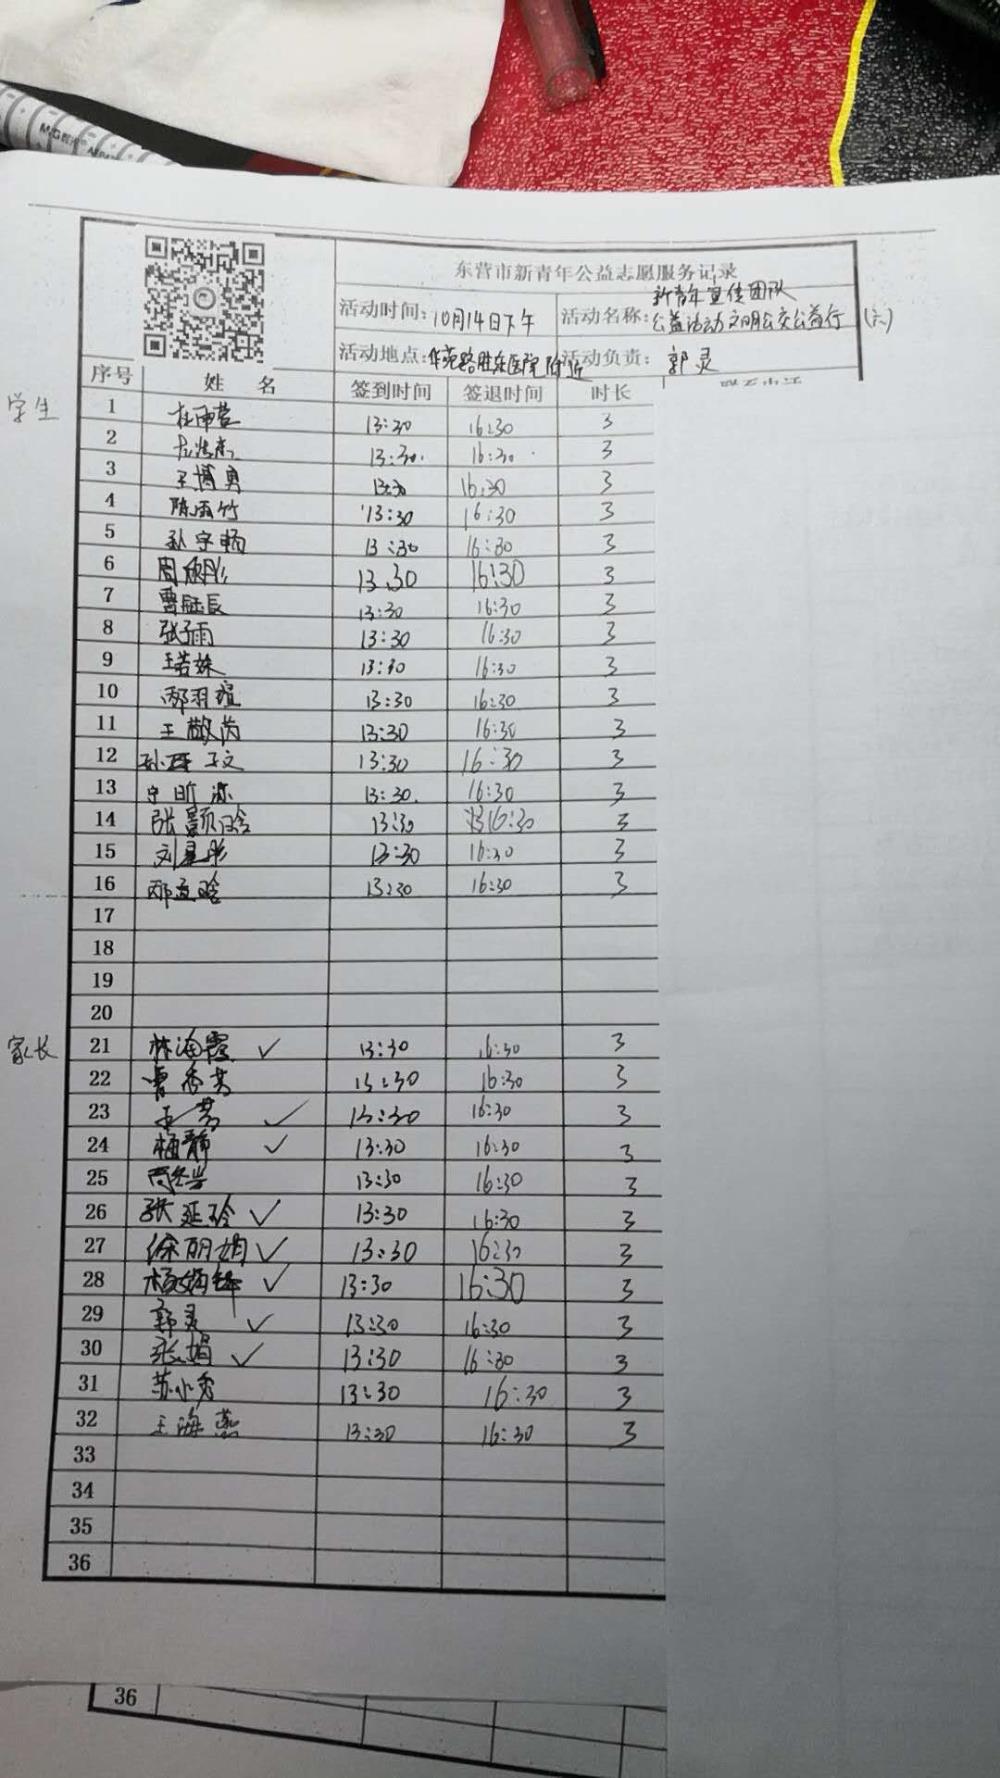 东营市新青年公益志愿服务记录
活动时间：10月14日下午 活动名称：新青年宣传团队
公益活动文明公交公益行（六）
活动地点：华苑路胜东医院附近 活动负责：郭灵
序号 姓 名 签到时间 签退时间 时长
学生
1 杜雨萱 13:30 16:30 3
2 13:30. 16:30 3
3 王博勇 13:30 16:30 3
4 陈雨竹 13:30 16:30 3
5 孙宇畅 13:30 16:30 3
6 周欣彤 13:30 16:30 3
7 曹 13:30 16:30 3
8 张子雨 13:30 16:30 3
9 王若姝 13:30 16:30 3
10 邴羽瑄 13:30 16:30 3
11 王敬芮 13:30 16:30 3
12 孙 子文 13:30 16:30 3
13 宁昕 13:30. 16:30 3
14 张颢晗 13:30 16:30 3
15 刘星彤 13:30 16:30 3
16 邴 晗 13:30 16:30 3
17
18
19
20
家长
21 林海霞 ✓ 13:30 16:30 3
22 曹秀芳 13:30 16:30 3
23 ✓ 13:30 16:30 3
24 梅静 ✓ 13:30 16:30 3
25 13:30 16:30 3
26 张延玲 ✓ 13:30 16:30 3
27 徐丽娟 ✓ 13:30 16:30 3
28 杨 ✓ 13:30 16:30 3
29 郭灵 ✓ 13:30 16:30 3
30 张娟 ✓ 13:30 16:30 3
31 苏小秀 13:30 16:30 3
32 王海燕 13:30 16:30 3
33
34
35
36
36